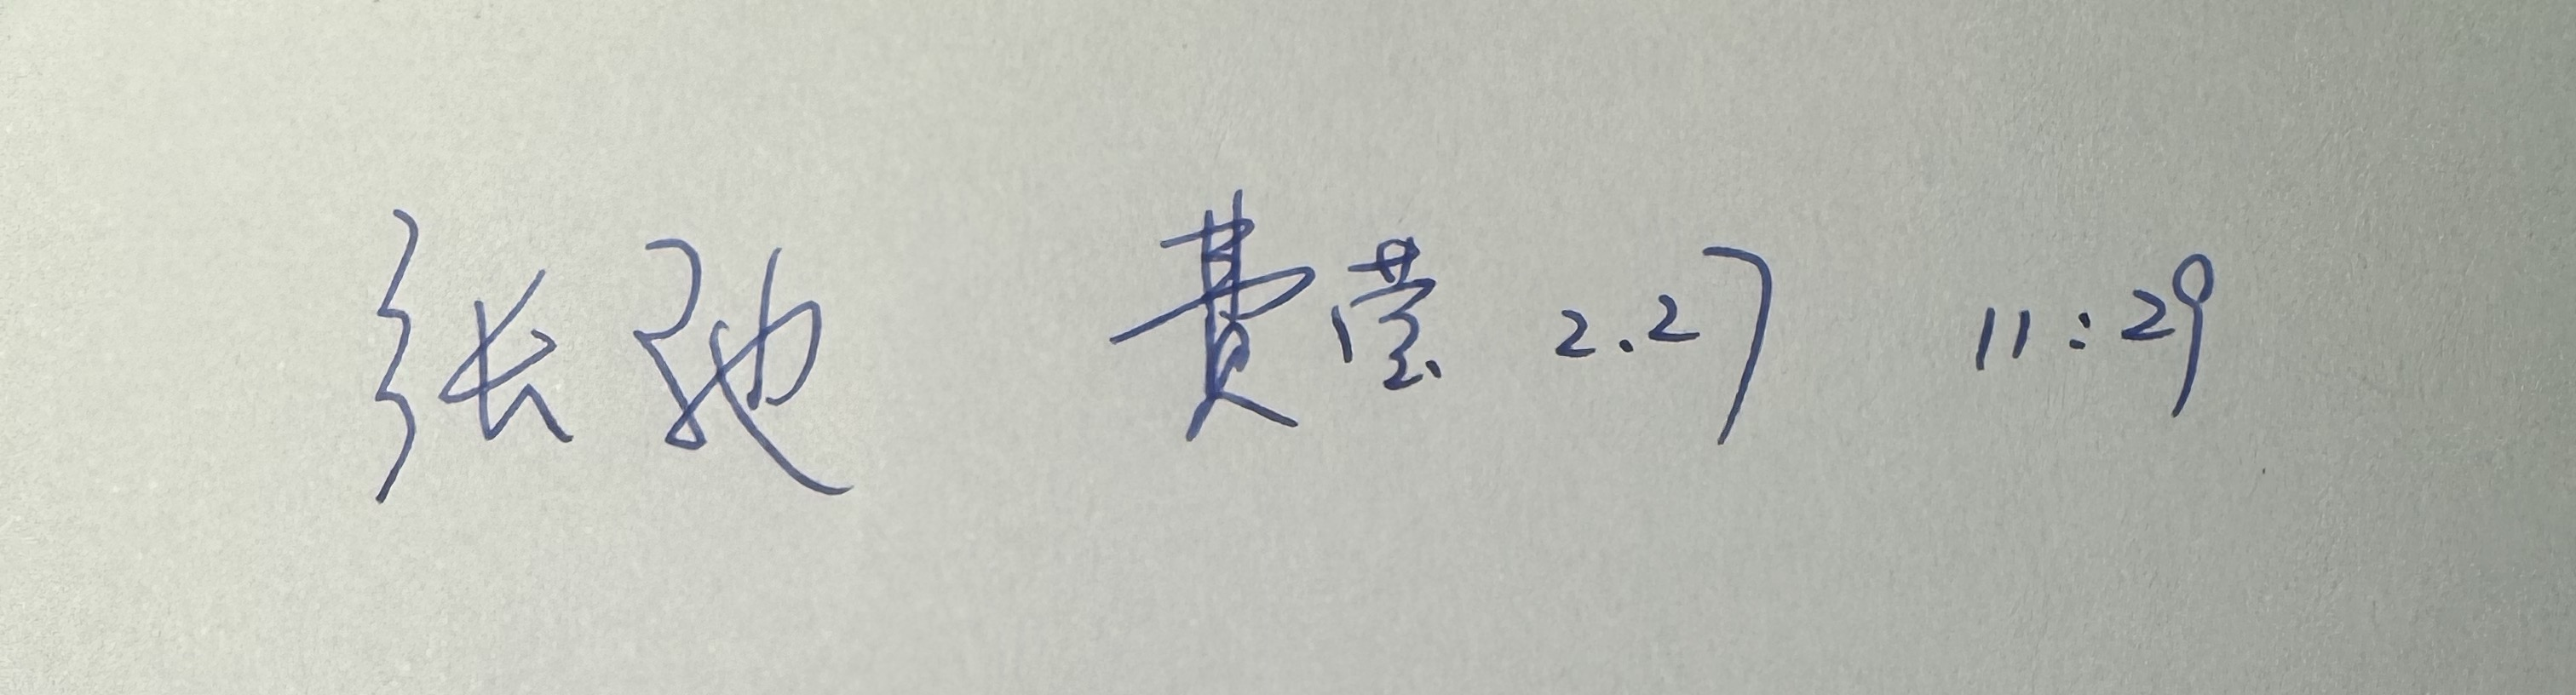 张弛 费莹 2.27 11:29